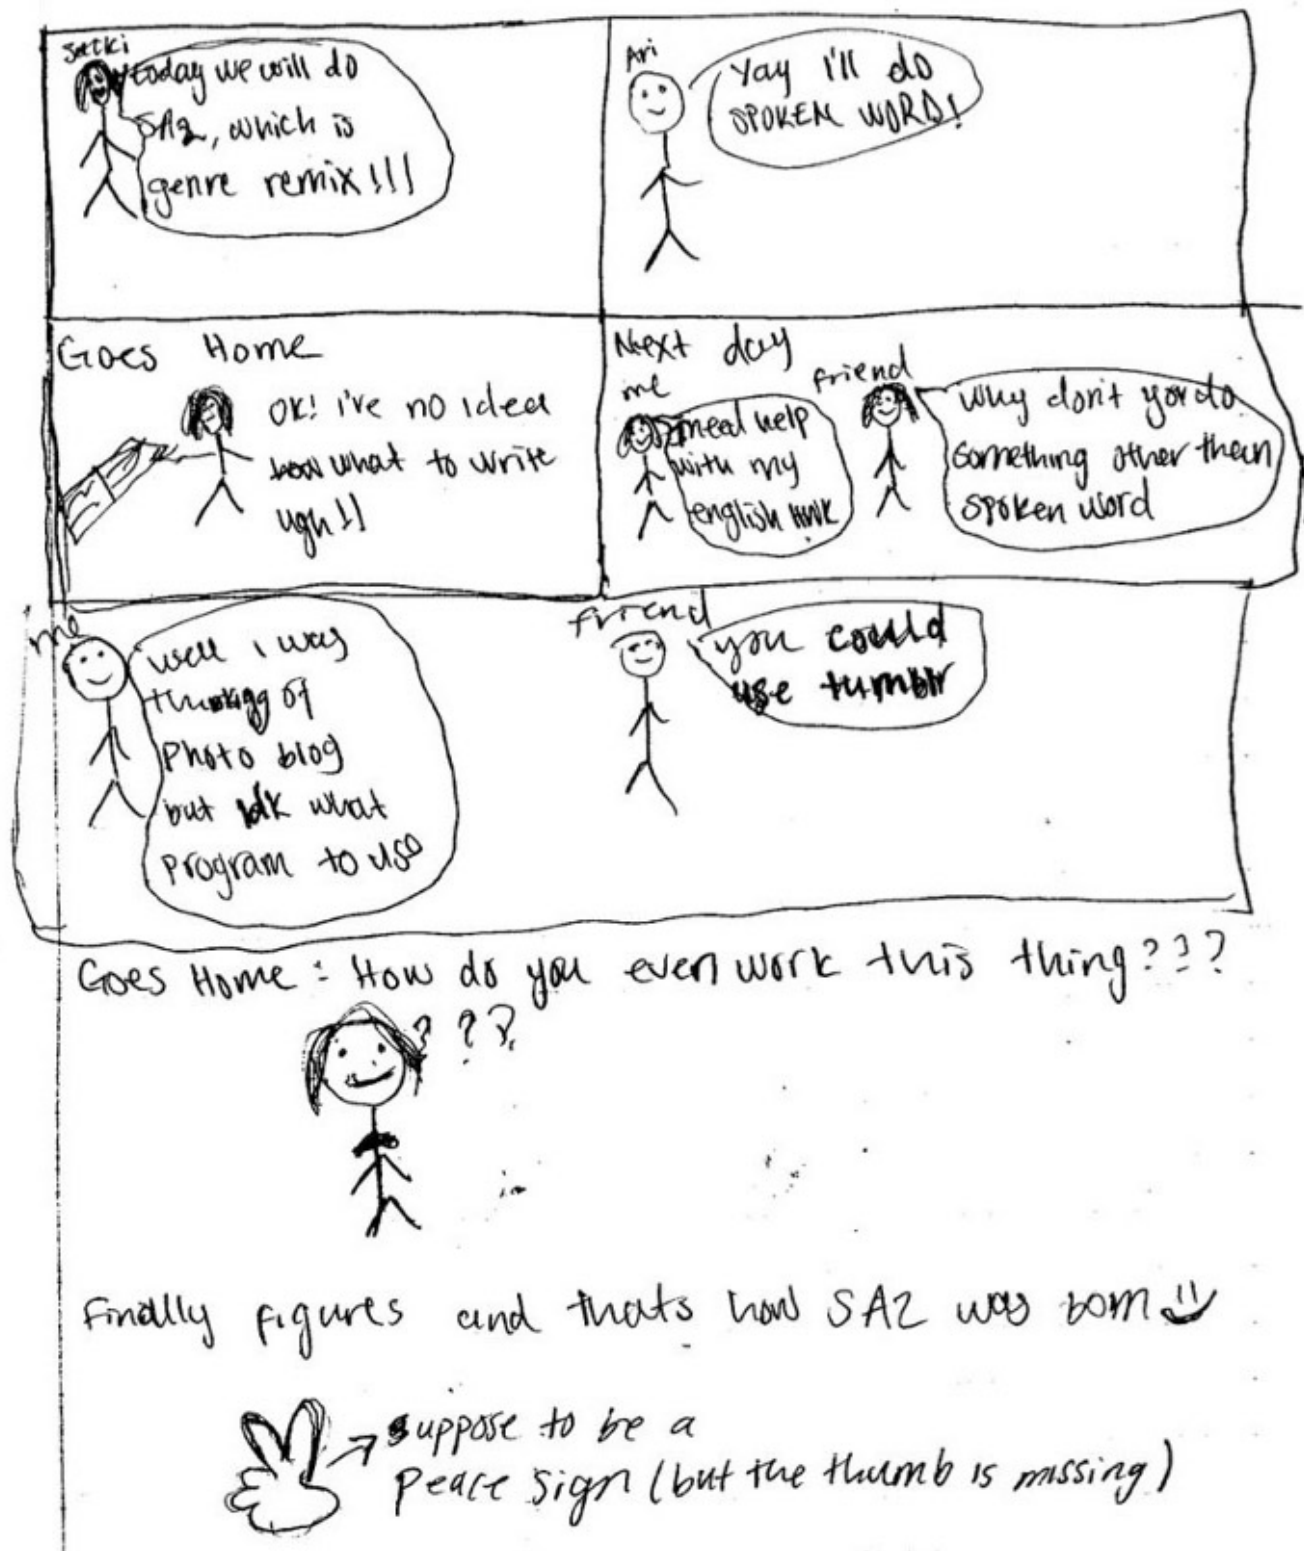 today we will do
SA2, which is
genre remix!!!
Ari
Yay i'll do
SPOKEN WORD!
Goes Home
OK! i've no idea
how what to write
ugh!!
Next day
me
i need help
with my
english hwk
friend
why don't you do
something other than
spoken word
me
well i was
thinking of
photo blog
but idk what
program to use
friend
you could
use tumblr
Goes Home : How do you even work this thing???
???
Finally figures and thats how SA2 was born
suppose to be a
peace sign (but the thumb is missing)